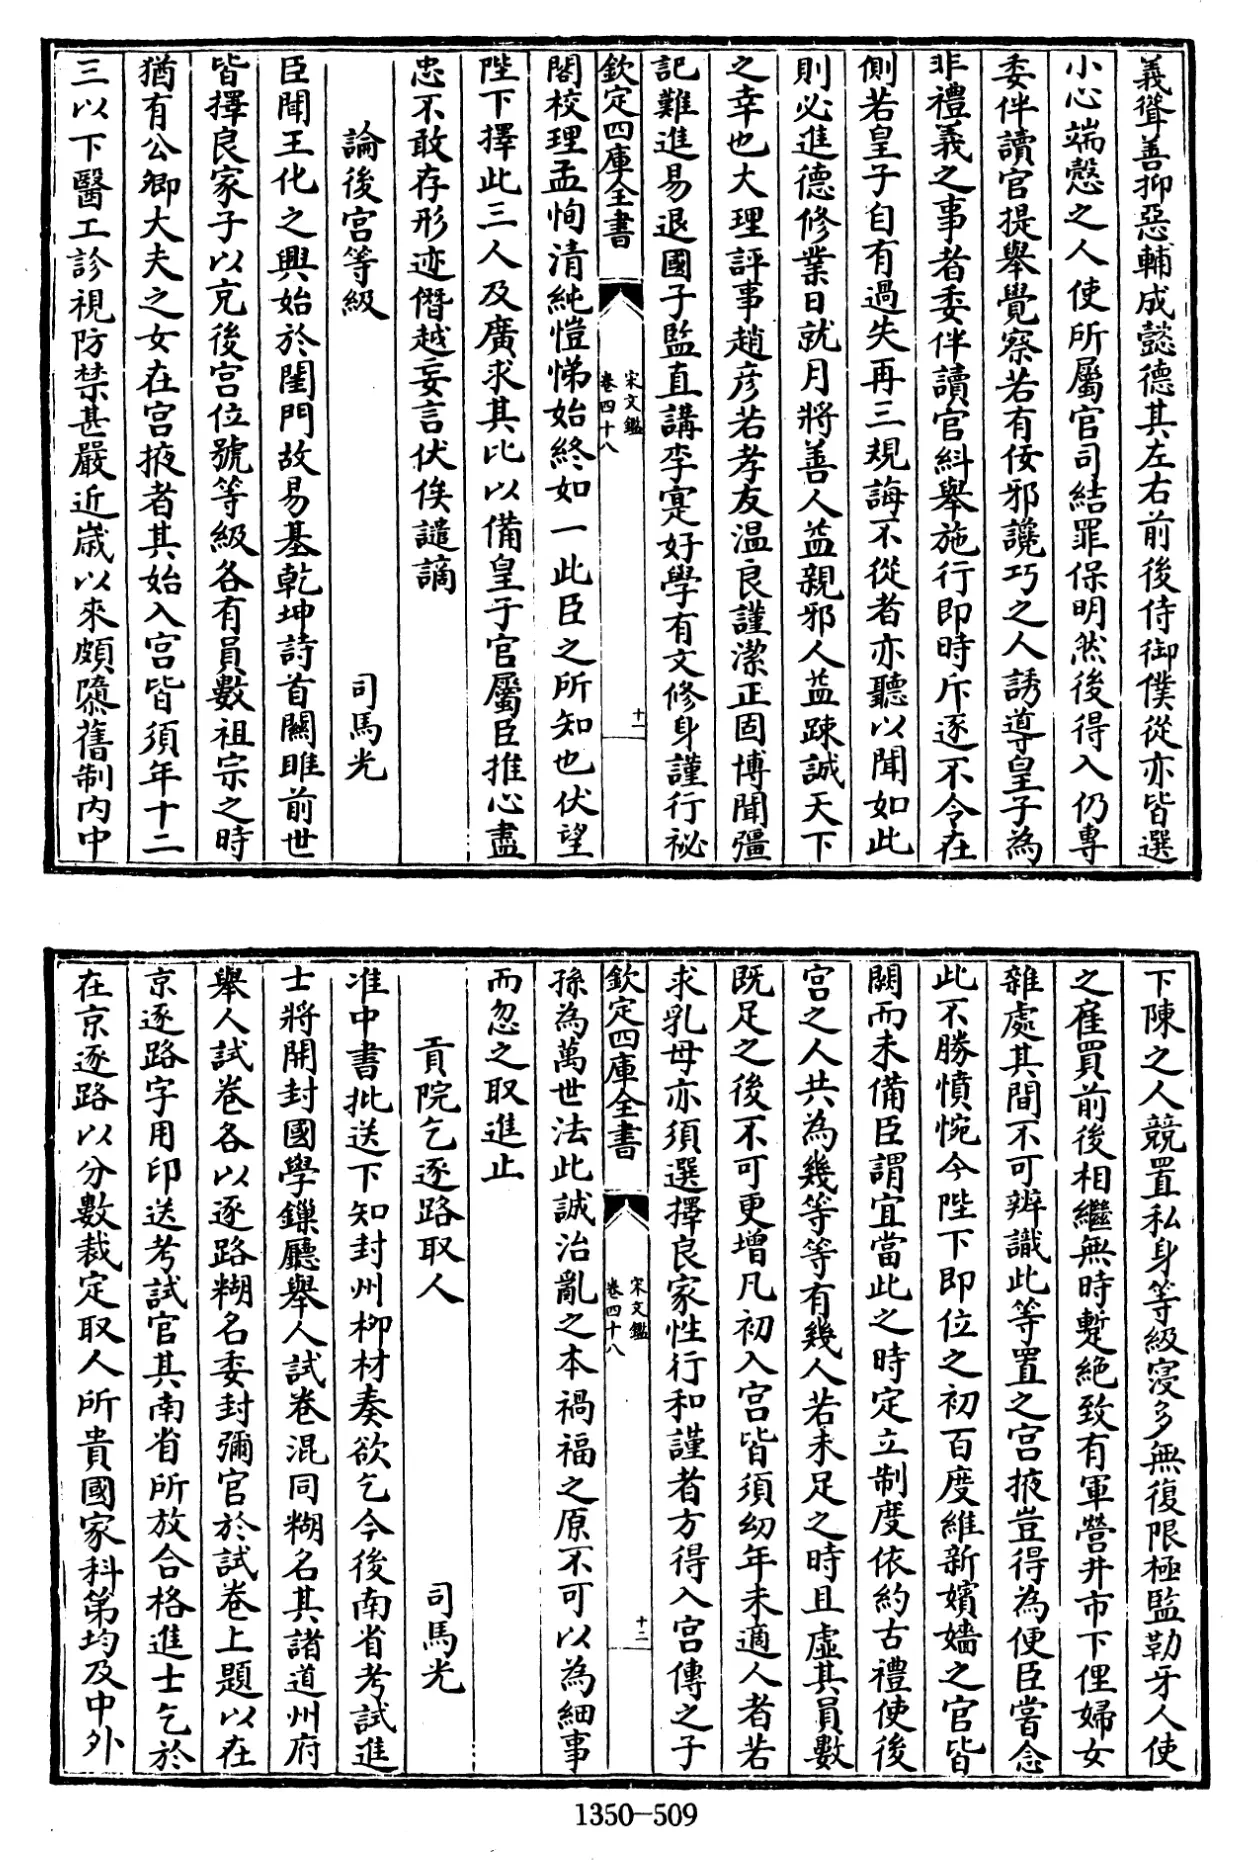 義聳善抑惡輔成懿德其左右前後侍御僕從亦皆選
小心端慤之人使所屬官司結罪保明然後得入仍專
委伴讀官提舉覺察若有佞邪讒巧之人誘導皇子為
非禮義之事者委伴讀官糾舉施行即時斥逐不令在
側若皇子自有過失再三規誨不從者亦聽以聞如此
則必進德修業日就月將善人益親邪人益踈誠天下
之幸也大理評事趙彦若孝友温良謹潔正固博聞彊
記難進易退國子監直講李寔好學有文修身謹行祕
欽定四庫全書
宋文鑑
卷四十八
十一
閣校理孟恂清純愷悌始終如一此臣之所知也伏望
陛下擇此三人及廣求其比以備皇子官屬臣推心盡
忠不敢存形迹僭越妄言伏俟譴謫
論後宮等級
司馬光
臣聞王化之興始於閨門故易基乾坤詩首關睢前世
皆擇良家子以充後宮位號等級各有員數祖宗之時
猶有公卿大夫之女在宮掖者其始入宮皆須年十二
三以下醫工診視防禁甚嚴近歲以來頗隳舊制内中
下陳之人競置私身等級寖多無復限極監勒牙人使
之雇買前後相繼無時蹔絶致有軍營井市下俚婦女
雜處其間不可辨識此等置之宮掖豈得為便臣嘗念
此不勝憤惋今陛下即位之初百度維新嬪嬙之官皆
闕而未備臣謂宜當此之時定立制度依約古禮使後
宮之人共為幾等等有幾人若未足之時且虛其員數
既足之後不可更增凡初入宮皆須幼年未適人者若
求乳母亦須選擇良家性行和謹者方得入宮傳之子
欽定四庫全書
宋文鑑
卷四十八
十二
孫為萬世法此誠治亂之本禍福之原不可以為細事
而忽之取進止
貢院乞逐路取人
司馬光
准中書批送下知封州栁材奏欲乞今後南省考試進
士將開封國學鏁廳舉人試卷混同糊名其諸道州府
舉人試卷各以逐路糊名委封彌官於試卷上題以在
京逐路字用印送考試官其南省所放合格進士乞於
在京逐路以分數裁定取人所貴國家科第均及中外
1350-509